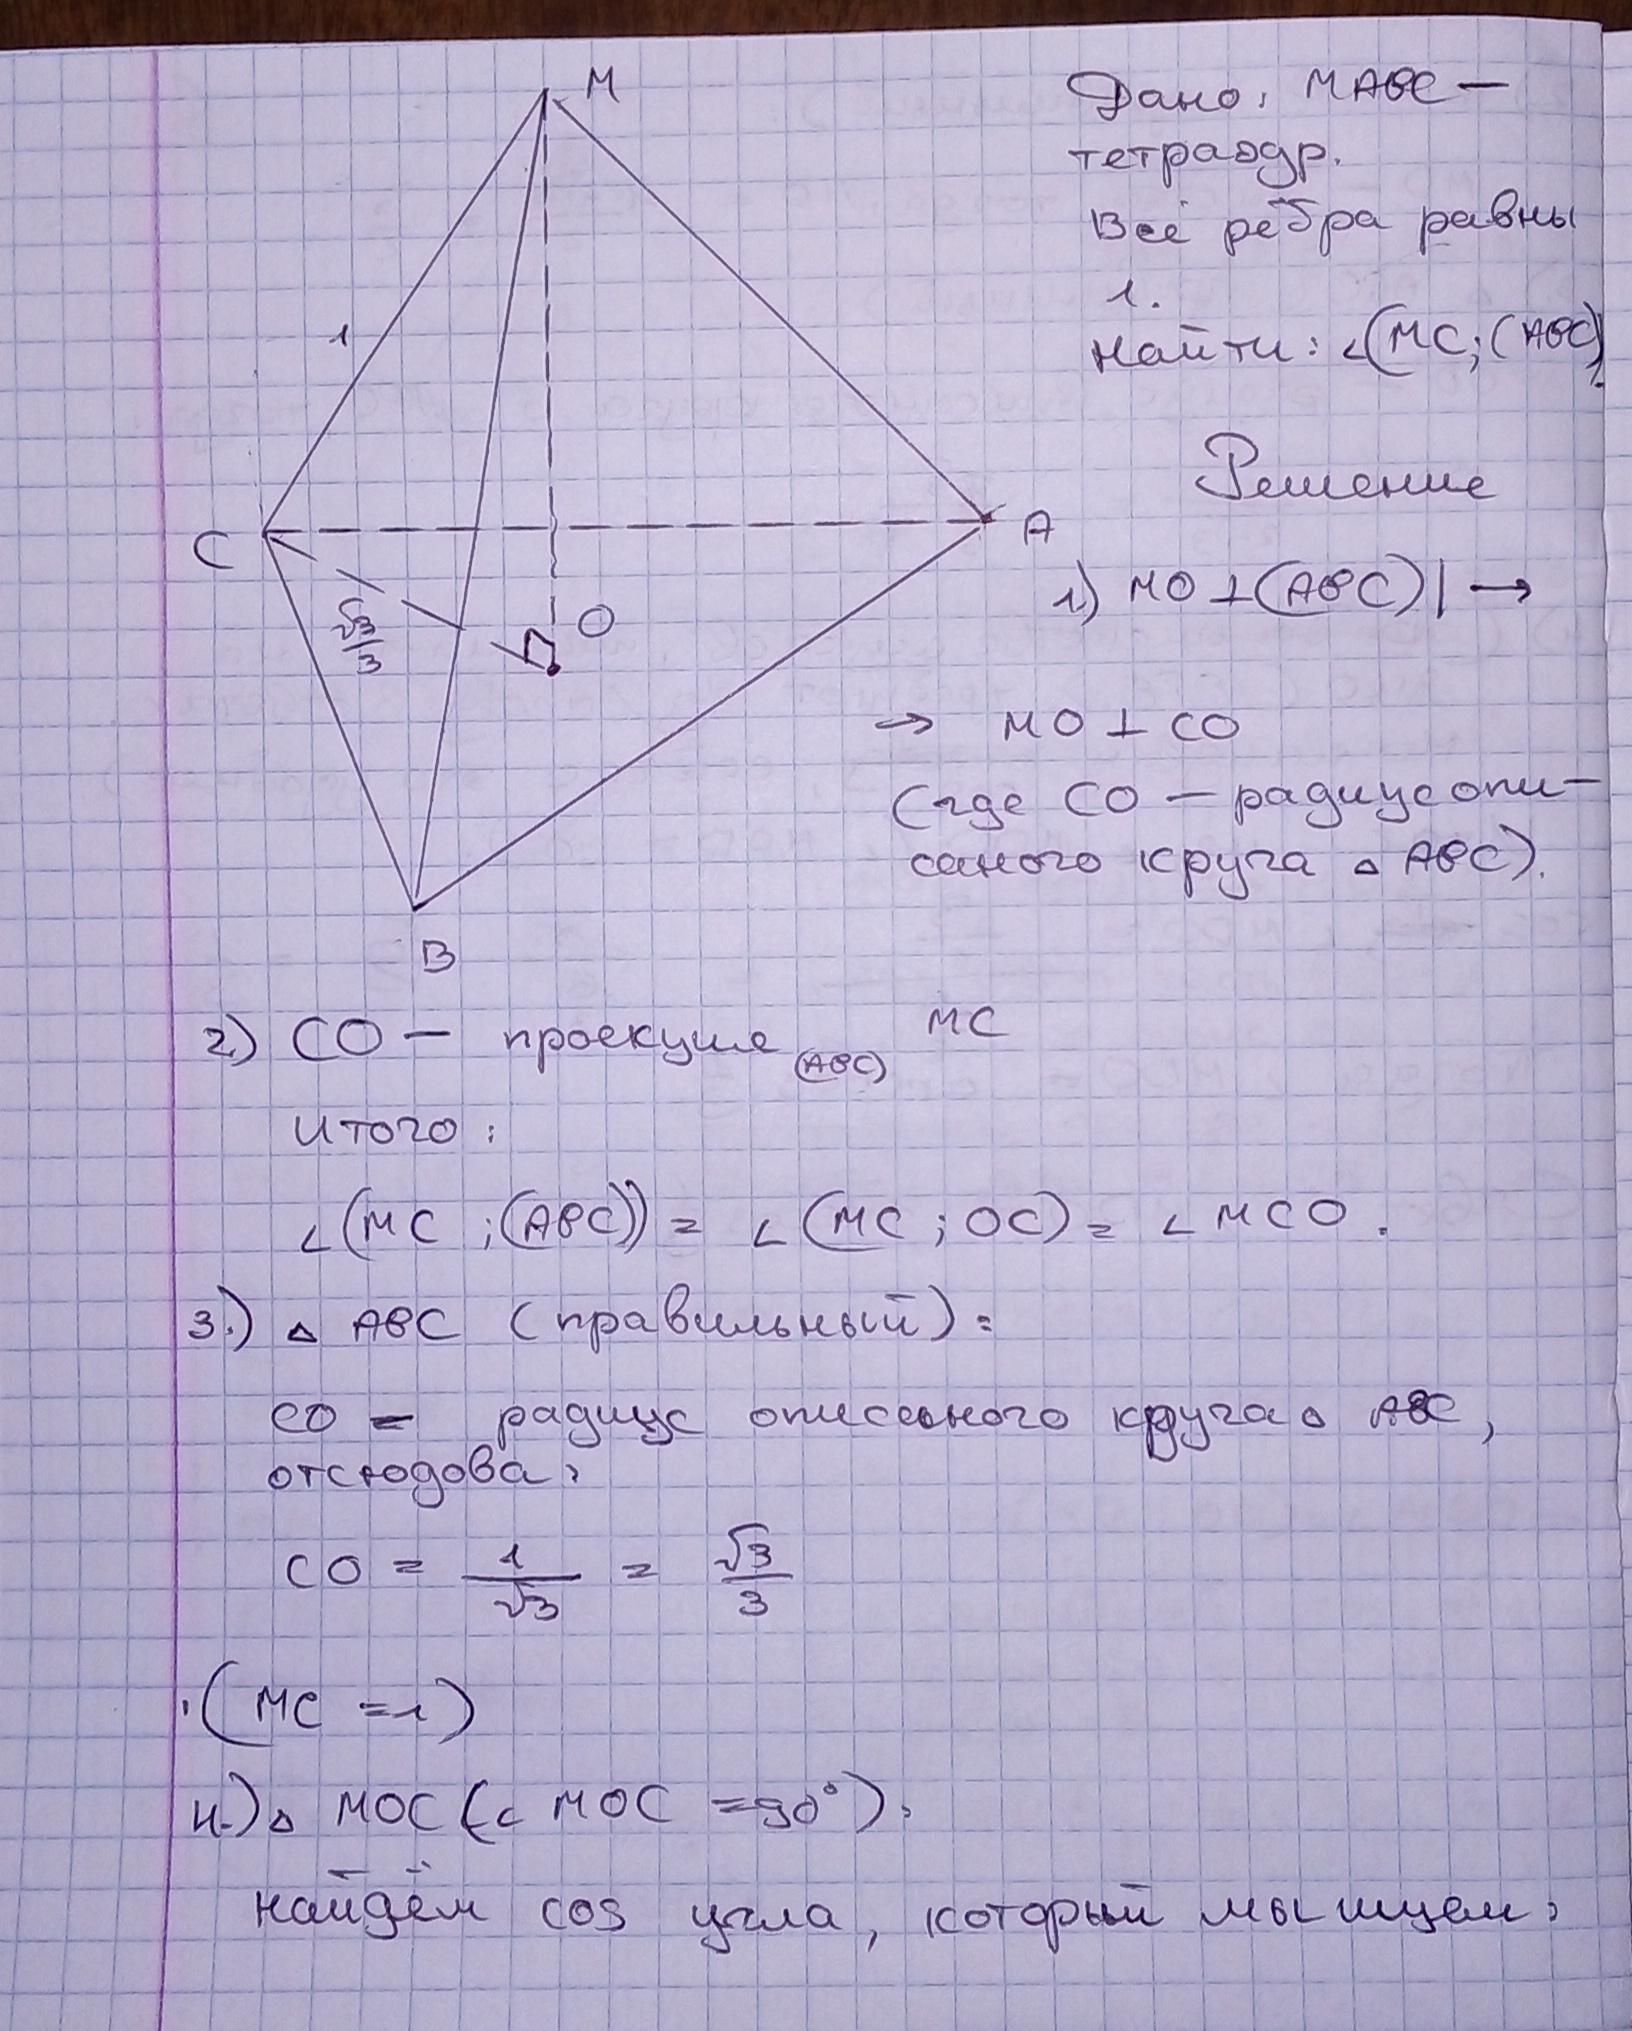 M
1
C
A
√3/3
O
B
Дано: MABC —
тетраэдр.
Все рёбра равны
1.
Найти: ∠(MC; (ABC)).
Решение
1.) MO ⊥ (ABC) | →
→ MO ⊥ CO
(где CO — радиус опи-
саного круга △ ABC).
2.) CO — проекция (ABC) MC
Итого:
∠(MC ; (ABC)) = ∠(MC ; OC) = ∠MCO.
3.) △ ABC (правильный):
CO — радиус описаного круга △ ABC,
отсюдова:
CO = 1/√3 = √3/3
(MC = 1)
4.) △ MOC (∠ MOC = 90°):
найдём cos угла, который мы ищем: